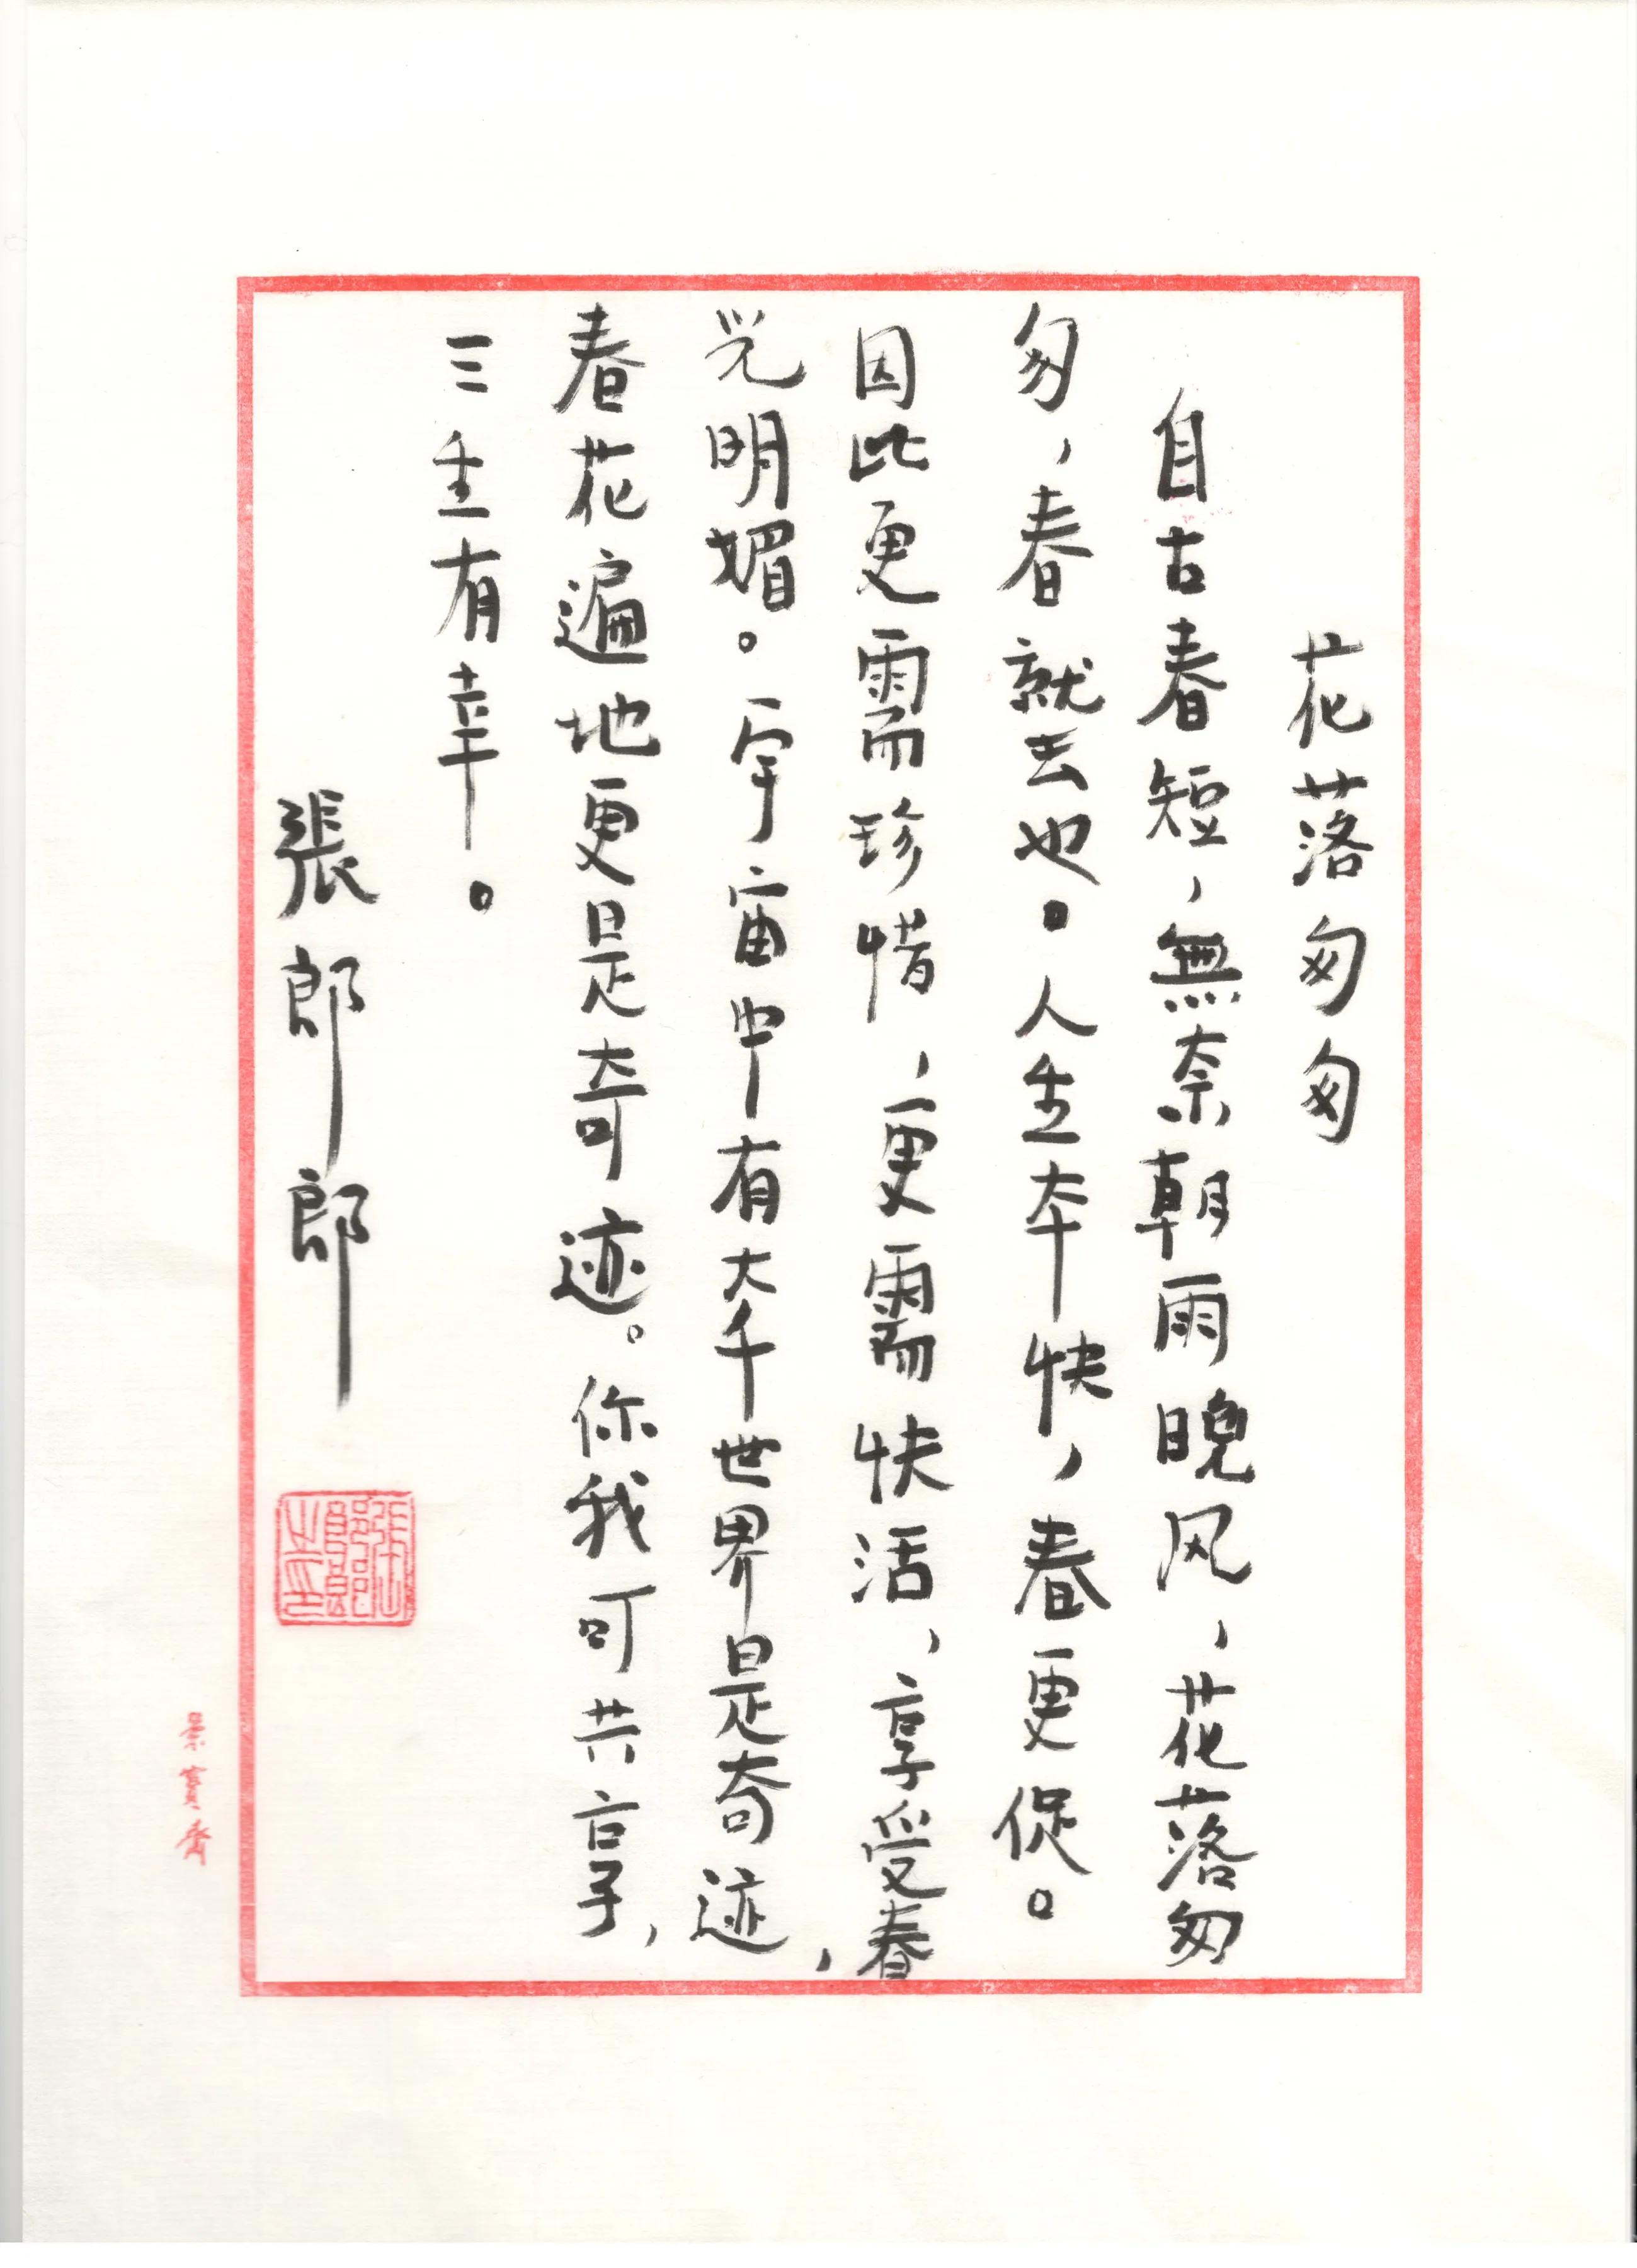 花落匆匆
自古春短，無奈朝雨晚风，花落匆
匆，春就去也。人生本快，春更促。
因此更需珍惜，更需快活，享受春
光明媚。宇宙中有大千世界是奇迹，
春花遍地更是奇迹。你我可共享，
三生有幸。
張郎郎
張郎郎之印
景寶齋